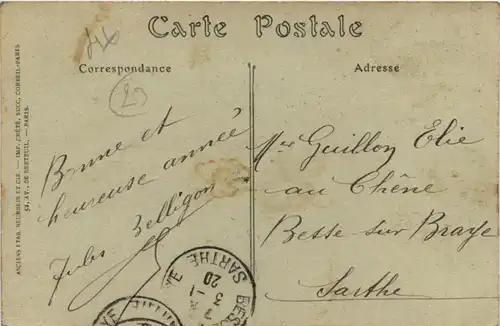 Carte Postale
Correspondance
Adresse
ANCIENS ETAB. NEURDEIN ET CIE. — IMP. CRÉTÉ, SUCC. CORBEIL-PARIS
52, AV. DE BRETEUIL. — PARIS.
Bonne et
heureuse année
Jules Belligon
Mr Guillon Elie
au Chêne
Besse sur Braye
Sarthe
BESSE
SARTHE
3 -1
20